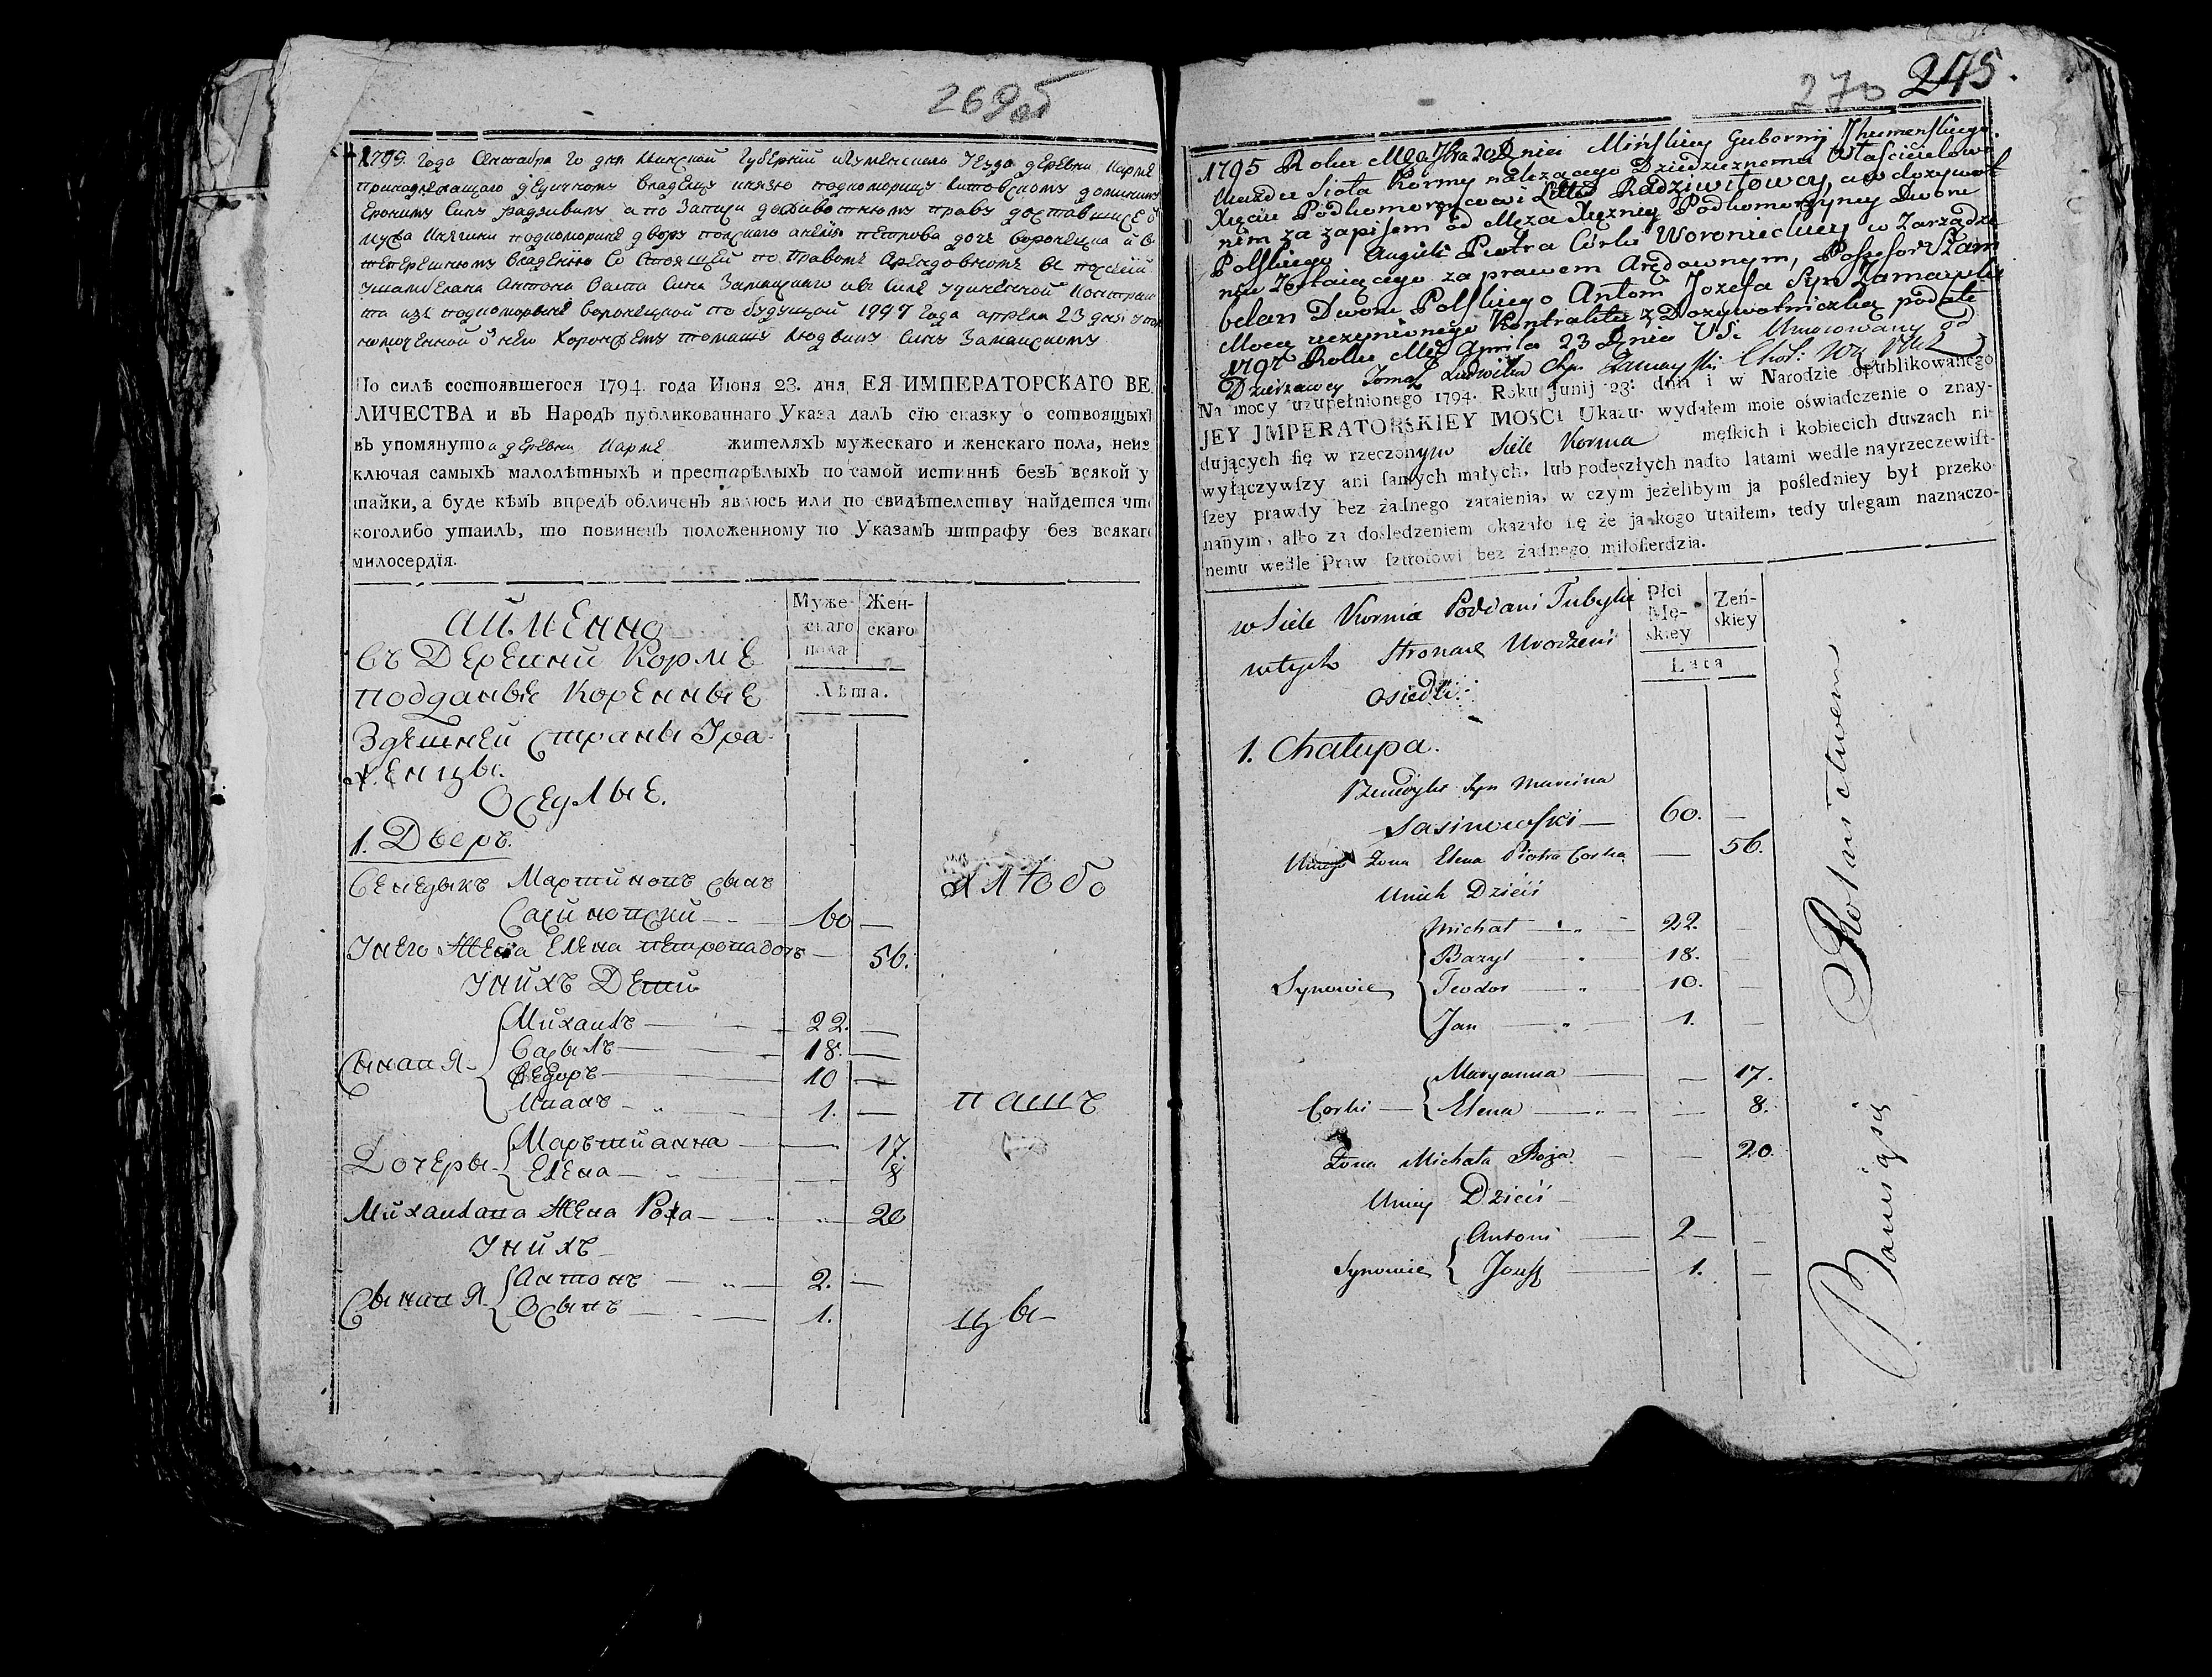 269об
1795. года Сентабра 20 дня Минской Губернии Игуменскаго Уезда деревни Кормы
принадлежащаго дедичному владелцу князю подкоморицу Литовскому доминику
Ерониму Сину радзивилу а по Записи доживотному праву доставшиеся
мужа Княгини подкоморине двору полскаго анели петрова доче воронецка и в
теперешнюмъ владенио Состоящей по правом арендовномъ
Антона Сина Замайскаго
изъ подкоморине воронецкой по будущой 1797 года апреля 23 дня
томашъ людвика Синъ Замайскомъ
По силѣ состоявшегося 1794. года Июня 23. дня, ЕЯ ИМПЕРАТОРСКАГО ВЕ
ЛИЧЕСТВА и въ Народъ публикованнаго Указа далъ сїю сказку о сотвоящыхъ
въ упомянутоа деревни Карме жителяхъ мужескаго и женскаго пола, неиз
ключая самыхъ малолѣтныхъ и престарѣлыхъ по самой истиннѣ безъ всякой у
тайки, а буде кѣмъ впредъ обличенъ явлюсь или по свидѣтелству найдется что
коголибо утаилъ, то повиненъ положенному по Указамъ штрафу без всякаго
милосердїя.
Аименно
въ Деревни Корме
подданые Коренные
Здешней Страны Уро
женцы.
Оседлые.
Муже-
скаго
пола
Жен-
скаго
Лѣта.
1. Дворъ.
Бенедыкъ Мартиновъ сынъ
Сасиновский — 60 —
Унего Жена Елена петровадочь — 56.
Унихъ Дети
Сыновя
Михаилъ — 22. —
Базылъ — 18. —
Федоръ — 10 —
Иванъ — 1. —
Дочеры
Маръцианна — 17.
Елена — 8
Михаилова Жена Рожа — 20
Унихъ
Сыновя
Антонъ — 2. —
Осыпъ — 1.
хлюбо
пашъ
цы
270 275.
1795 Roku Mca 7bra 20 Dnia Mińskiey Gubernij Jhumenskiego
Uiezdu Sioła Kormy należącego Dziedzicznemu Właścicielowi
Xięciu Podkomorzycowi Litto Radziwiłłowcy, a w dożywot
nim za zapisem od Męża Xiężney Podkomorzyney Dworu
Polskiego Angeli Piotra Córki Woronieckiey w Zarządze
niu Zostaiącego za prawem Arędownym, Possessor Szam
belan Dworu Polskiego Antoni Jozefa Syn Zamayski
Mocą uczynionego Kontraktu z Dożywotniczką podatę
1797 Roku Mca Aprila 23 Dnia VSi Umocowany od
Dzierzawcy Tomasz Ludwika Syn Zamayski
Na mocy uzupełnionego 1794. Roku Junij 23: dnia i w Narodzie opublikowanego
JEY JMPERATORSKIEY MOSCI Ukazu wydałem moie oświadczenie o znay-
dujących ſię w rzeczonym Siele Korma męſkich i kobiecich duszach ni
wyłączywſzy ani ſamych małych, lub podeszłych nadto latami wedle nayrzeczewiſt-
ſzey prawdy bez żadnego zataienia, w czym jeżelibym ja poſledniey był przeko-
nanym, albo za doſledzeniem okazało ſię że ja kogo utaiłem, tedy ulegam naznaczo-
nemu wedle Praw ſztrofowi bez żadnego miłoſierdzia.
w Siele Kormie Poddani Tubylce
w tych Stronach Urodzeni
Osiedli.
Płci
Mę-
skiey
Żeń-
skiey
Lata
1. Chałupa.
Benedykt Syn Marcina
Sasinowski — 60. —
Żona Elena Piotra Corka — 56.
Unich Dzieci
Synowie
Michał — 22. —
Bazyl — 18. —
Teodor — 10. —
Jan — 1. —
Corki
Maryanna — 17.
Elena — 8.
Żona Michała Roża — 20.
Uniey Dzieci
Synowie
Antoni — 2 —
Jozef — 1. —
Bawiąsię Rolnictwem